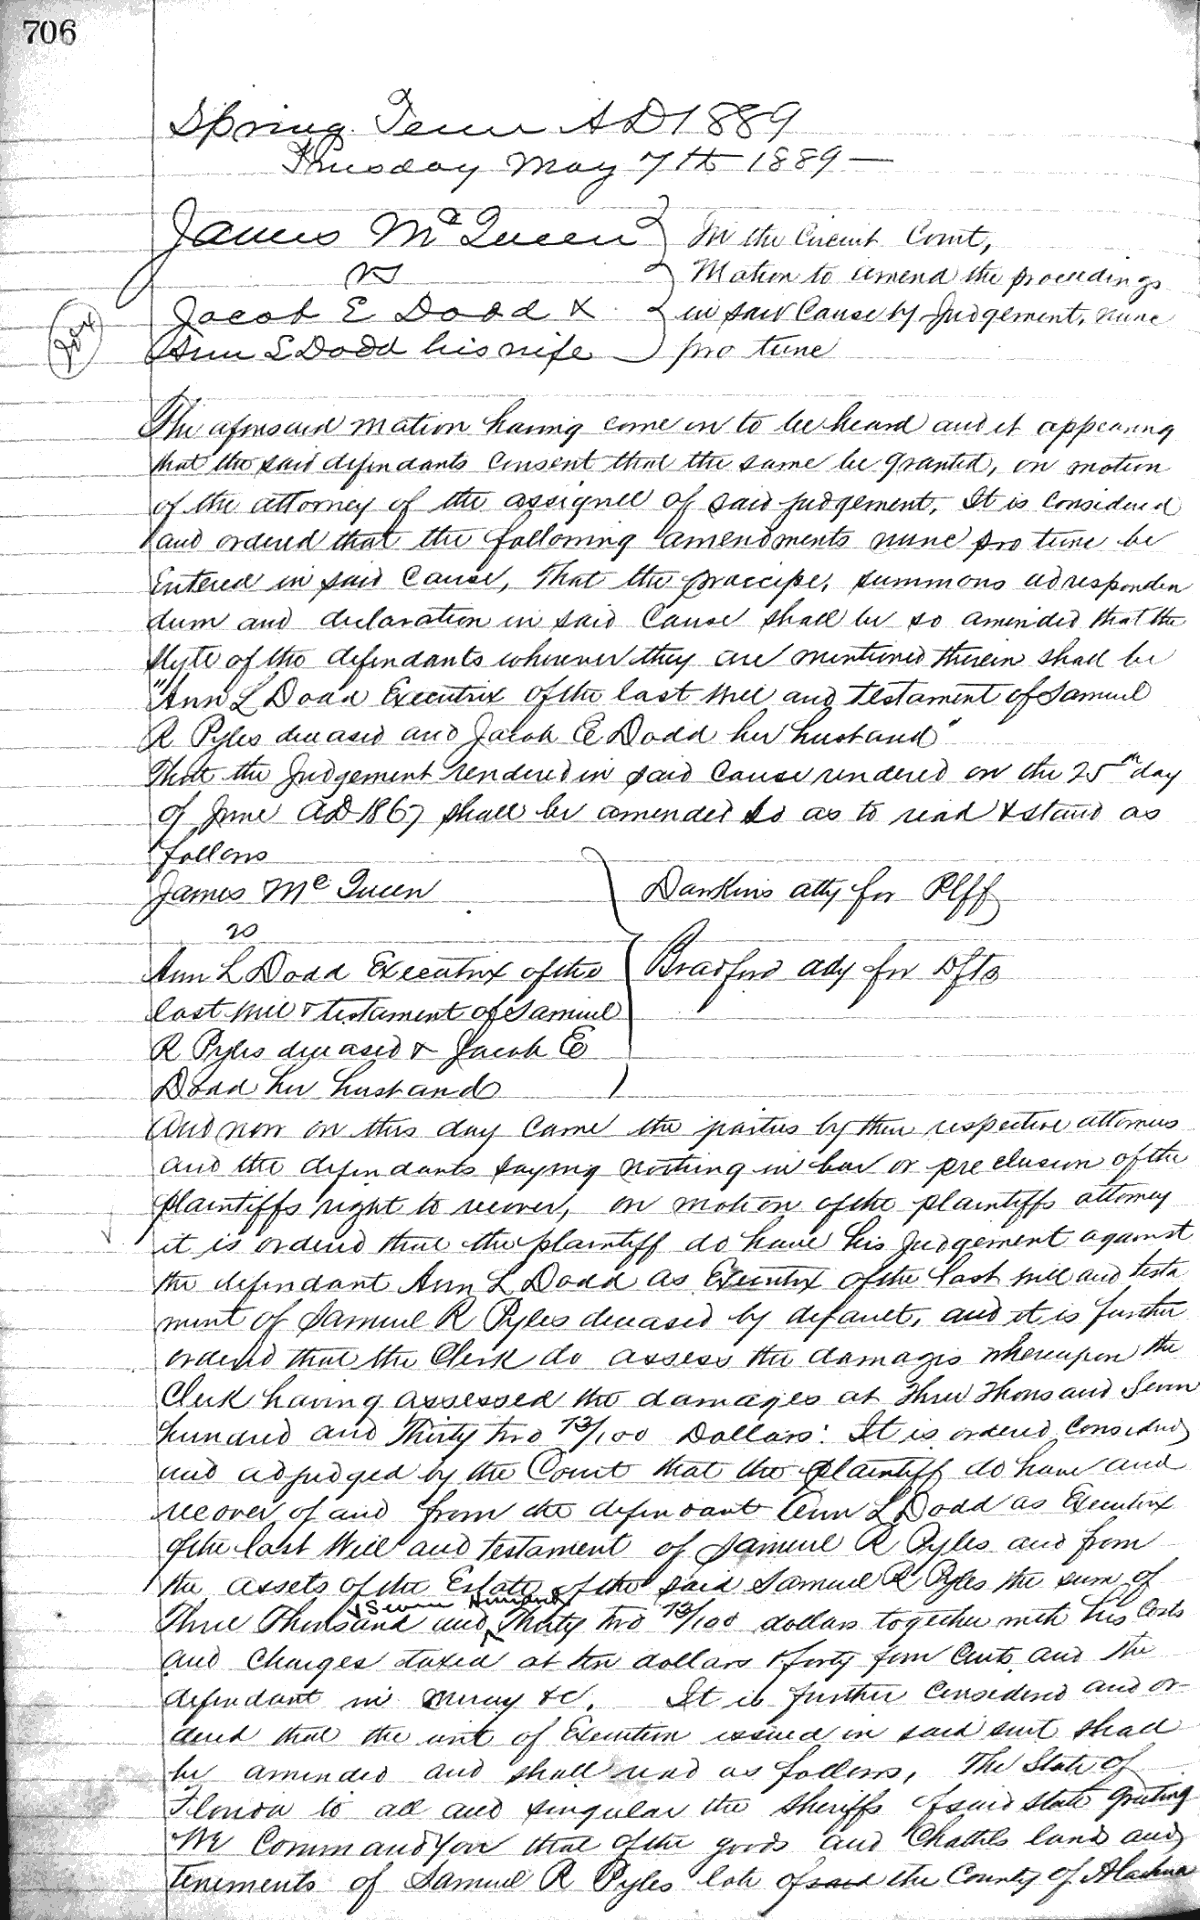 706
Spring Term A D 1889
Tuesday May 7th 1889 —
James Mc Queen } In the Circuit Court,
vs } Motion to amend the proceedings
Jacob E Dodd & } in said Cause by Judgement, nunc
Ann L Dodd his wife } pro tunc
The aforesaid motion having come on to be heard and it appearing
that the said defendants consent that the same be granted, on motion
of the attorney of the assignee of said judgement, It is considered
and ordered that the following amendments nunc pro tunc be
Entered in said Cause, That the praecipe, summons ad responden
dum and declaration in said Cause shall be so amended that the
style of the defendants wherever they are mentioned therein shall be
"Ann L Dodd Executrix of the last will and testament of Samuel
R Pyles deceased and Jacob E Dodd her husband"
That the Judgement rendered in said Cause rendered on the 25th day
of June AD 1867 shall be amended so as to read & stand as
follows
James Mc Queen } Dawkins atty for Plff
vs
Ann L Dodd Executrix of the } Bradford atty for Dfts
last will & testament of Samuel
R Pyles deceased & Jacob E
Dodd her husband
And now on this day came the parties by their respective attorneys
and the defendants saying nothing in bar or preclusion of the
plaintiffs right to recover, on motion of the plaintiffs attorney
it is ordered that the plaintiff do have his Judgement against
the defendant Ann L Dodd as Executrix of the last will and testa
ment of Samuel R Pyles deceased by default, and it is further
ordered that the Clerk do assess the damages whereupon the
Clerk having assessed the damages at Three Thousand Seven
hundred and Thirty two 73/100 Dollars: It is ordered, Considered
and adjudged by the Court that the plaintiff do have and
recover of and from the defendant Ann L Dodd as Executrix
of the last Will and testament of Samuel R Pyles and from
the assets of the Estate of the said Samuel R Pyles the sum of
Seven Hundred
Three Thousand and Thirty two 73/100 dollars together with his Costs
and Charges taxed at ten dollars & forty four Cents and the
defendant in mercy &c. It is further Considered and or-
dered that the writ of Execution issued in said suit shall
be amended and shall read as follows, The State of
Florida to all and singular the sheriffs of said state greeting
We Command You that of the goods and Chattels land and
tenements of Samuel R Pyles late of said the County of Alachua